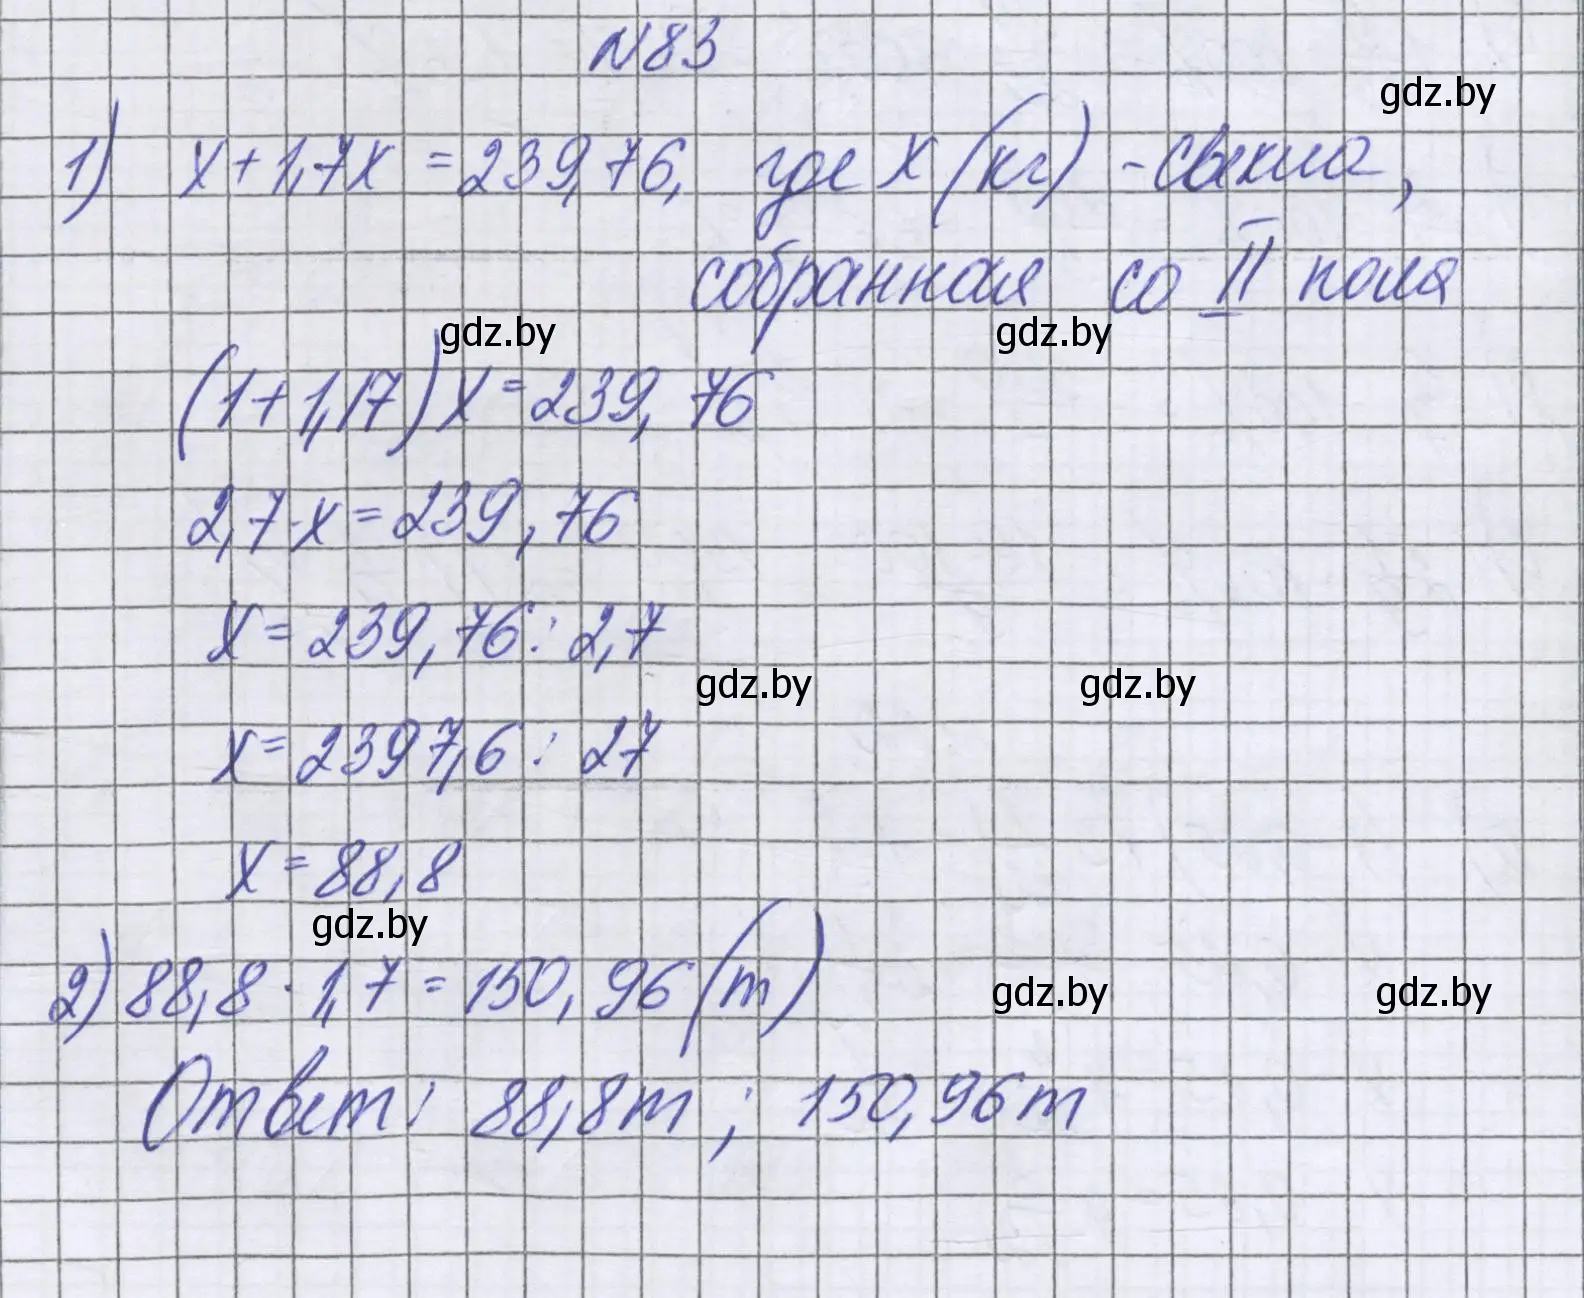 №83
gdz.by
1) x+1,7x = 239,76, где x (кг) - свекла,
собранная со II поля
gdz.by gdz.by
(1+1,17)x = 239,76
2,7·x = 239,76
x = 239,76 : 2,7
gdz.by gdz.by
x = 2397,6 : 27
x = 88,8
gdz.by
2) 88,8 · 1,7 = 150,96 (т)
gdz.by gdz.by
Ответ: 88,8т; 150,96т